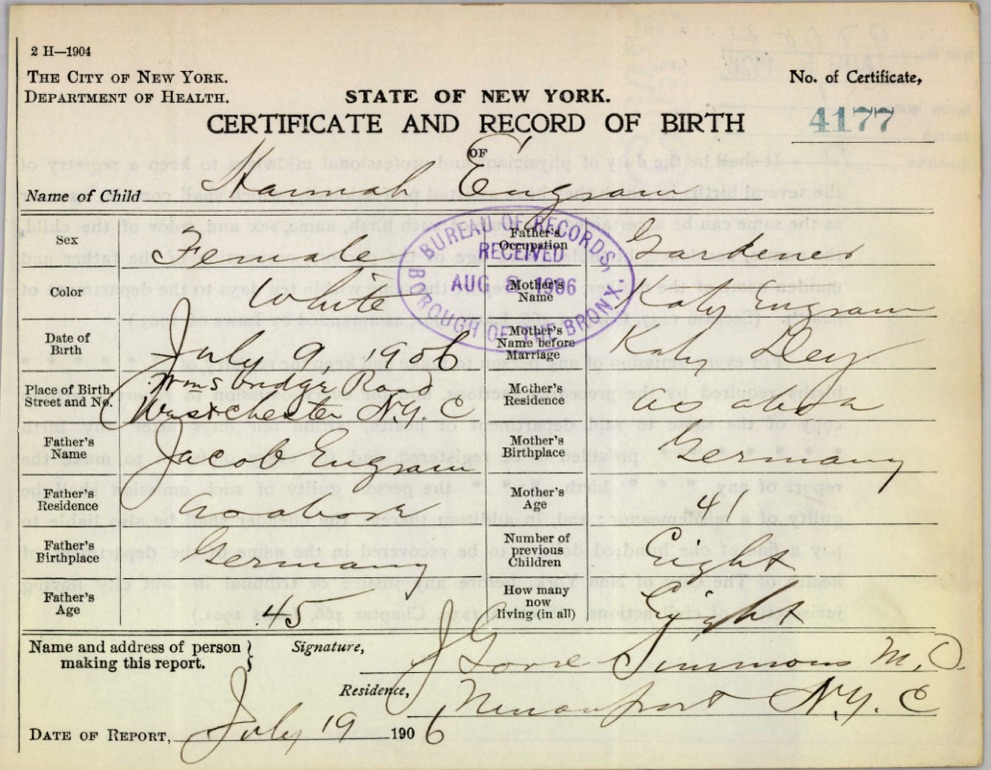 2 H—1904
THE CITY OF NEW YORK.
DEPARTMENT OF HEALTH.
STATE OF NEW YORK.
No. of Certificate,
4177
CERTIFICATE AND RECORD OF BIRTH
OF
Name of Child Hannah Engram
Sex Female
Father's Occupation Gardener
BUREAU OF RECORDS,
RECEIVED
AUG 8 1906
BOROUGH OF THE BRONX.
Color White
Mother's Name Katy Engram
Date of Birth July 9, 1906
Mother's Name before Marriage Katy Dey
Place of Birth, Street and No. Road
Westchester N.Y. C
Mother's Residence as above
Father's Name Jacob Engram
Mother's Birthplace Germany
Father's Residence as above
Mother's Age 41
Father's Birthplace Germany
Number of previous Children Eight
Father's Age 45
How many now living (in all) Eight
Name and address of person making this report.
Signature, J G Simmons M.D.
Residence, N.Y. C
DATE OF REPORT, July 19 1906